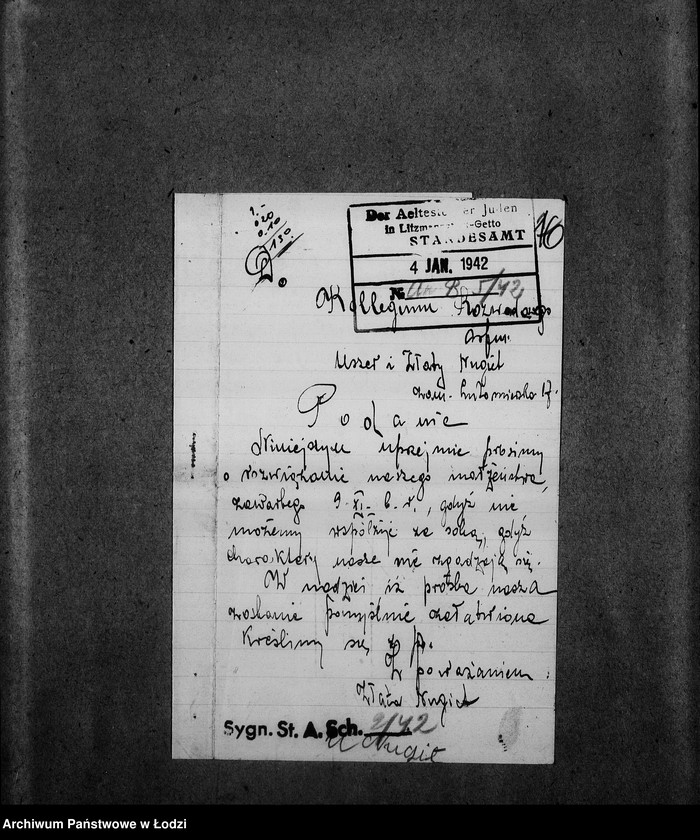 1.-
0.20
0.10
1.30.
Der Aelteste der Juden
in Litzmannstadt-Getto
STANDESAMT
4 JAN. 1942
№ 5/42
76
Kollegium Rozwodowego
Uszer i Złaty Nugiel
zam. Lutomierska 17.
Podanie
Niniejszym uprzejmie prosimy
o rozwiązanie naszego małżeństwa,
zawartego 9. XI. b. r., gdyż nie
możemy współżyć ze sobą, gdyż
charaktery nasze nie zgadzają się.
W nadziei, iż prośba nasza
zostanie pomyślnie załatwiona
kreślimy się z p.
Z poważaniem:
Złata Nugiel
Sygn. St. A. Sch. 2/42
U Nugiel
Archiwum Państwowe w Łodzi